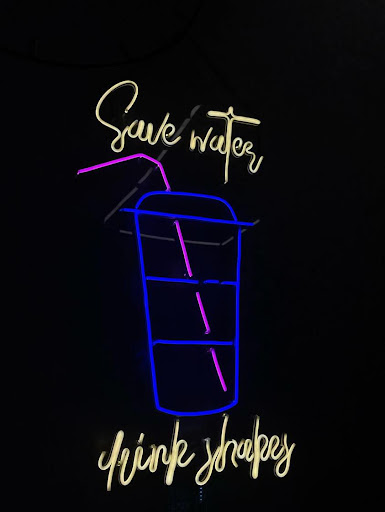 Save water
drink shakes